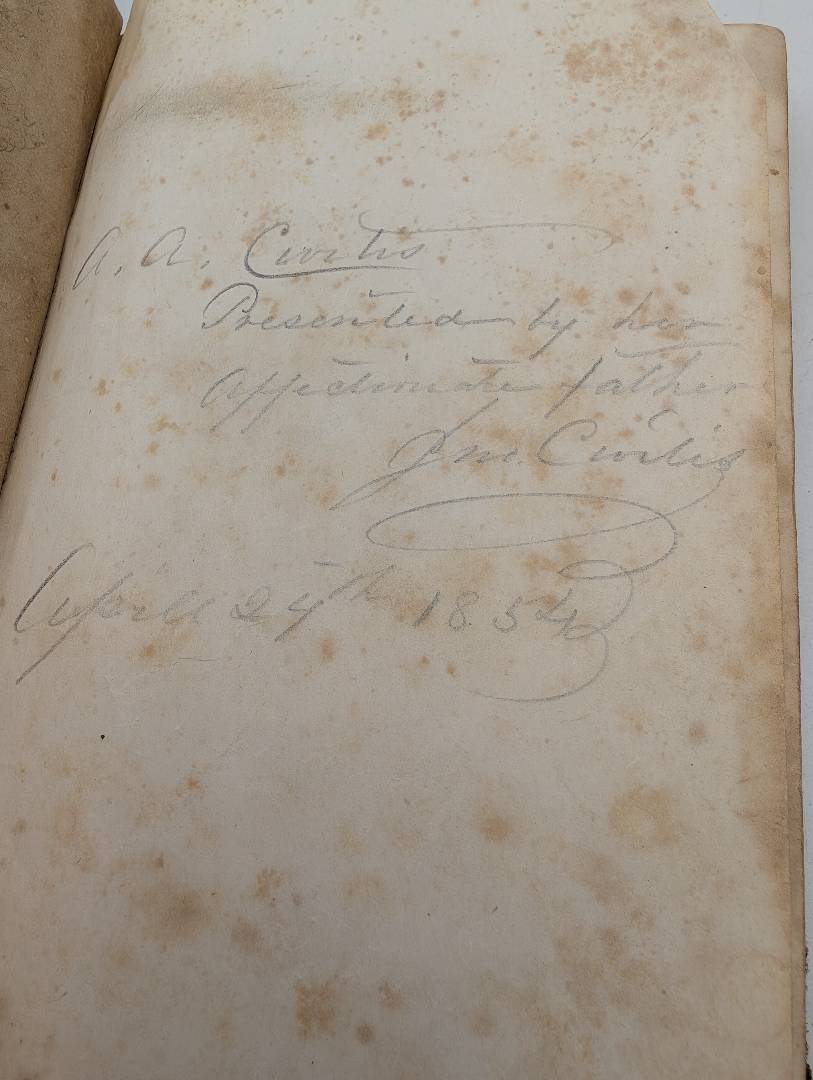 A. A. Curtis
Presented by her
Affectionate father
Jno. Curtis
April 24th 1854